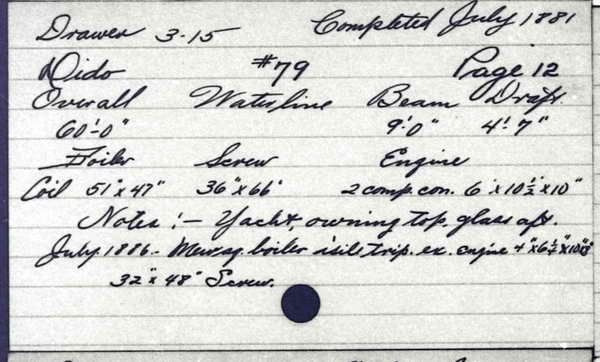 Drawer 3-15 Completed July 1881
Dido #79 Page 12
Overall Waterline Beam Draft
60'-0" 9'-0" 4'-7"
Boiler Screw Engine
Coil 51" x 47" 36" x 66" 2 comp. con. 6 x 10 1/2 x 10"
Notes :- Yacht, awning top, glass aft.
July 1886 - New sq. boiler & trip. ex. engine 4" x 6 1/2" x
32" x 48" Screw.